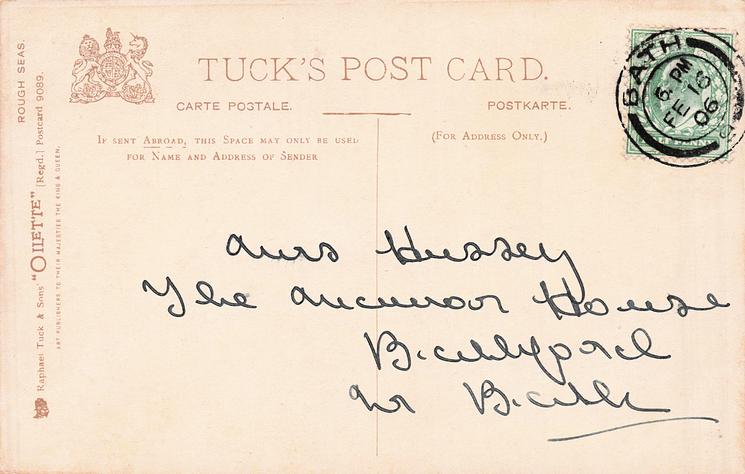 ROUGH SEAS.
Raphael Tuck & Sons' "OILETTE" [Regd.] Postcard 9089.
ART PUBLISHERS TO THEIR MAJESTIES THE KING & QUEEN.
TUCK'S POST CARD.
CARTE POSTALE. POSTKARTE.
IF SENT ABROAD, THIS SPACE MAY ONLY BE USED
FOR NAME AND ADDRESS OF SENDER
(FOR ADDRESS ONLY.)
BATH
6. PM
FE 16
06
PENNY
Mrs Hussey
The House
Nr Bath